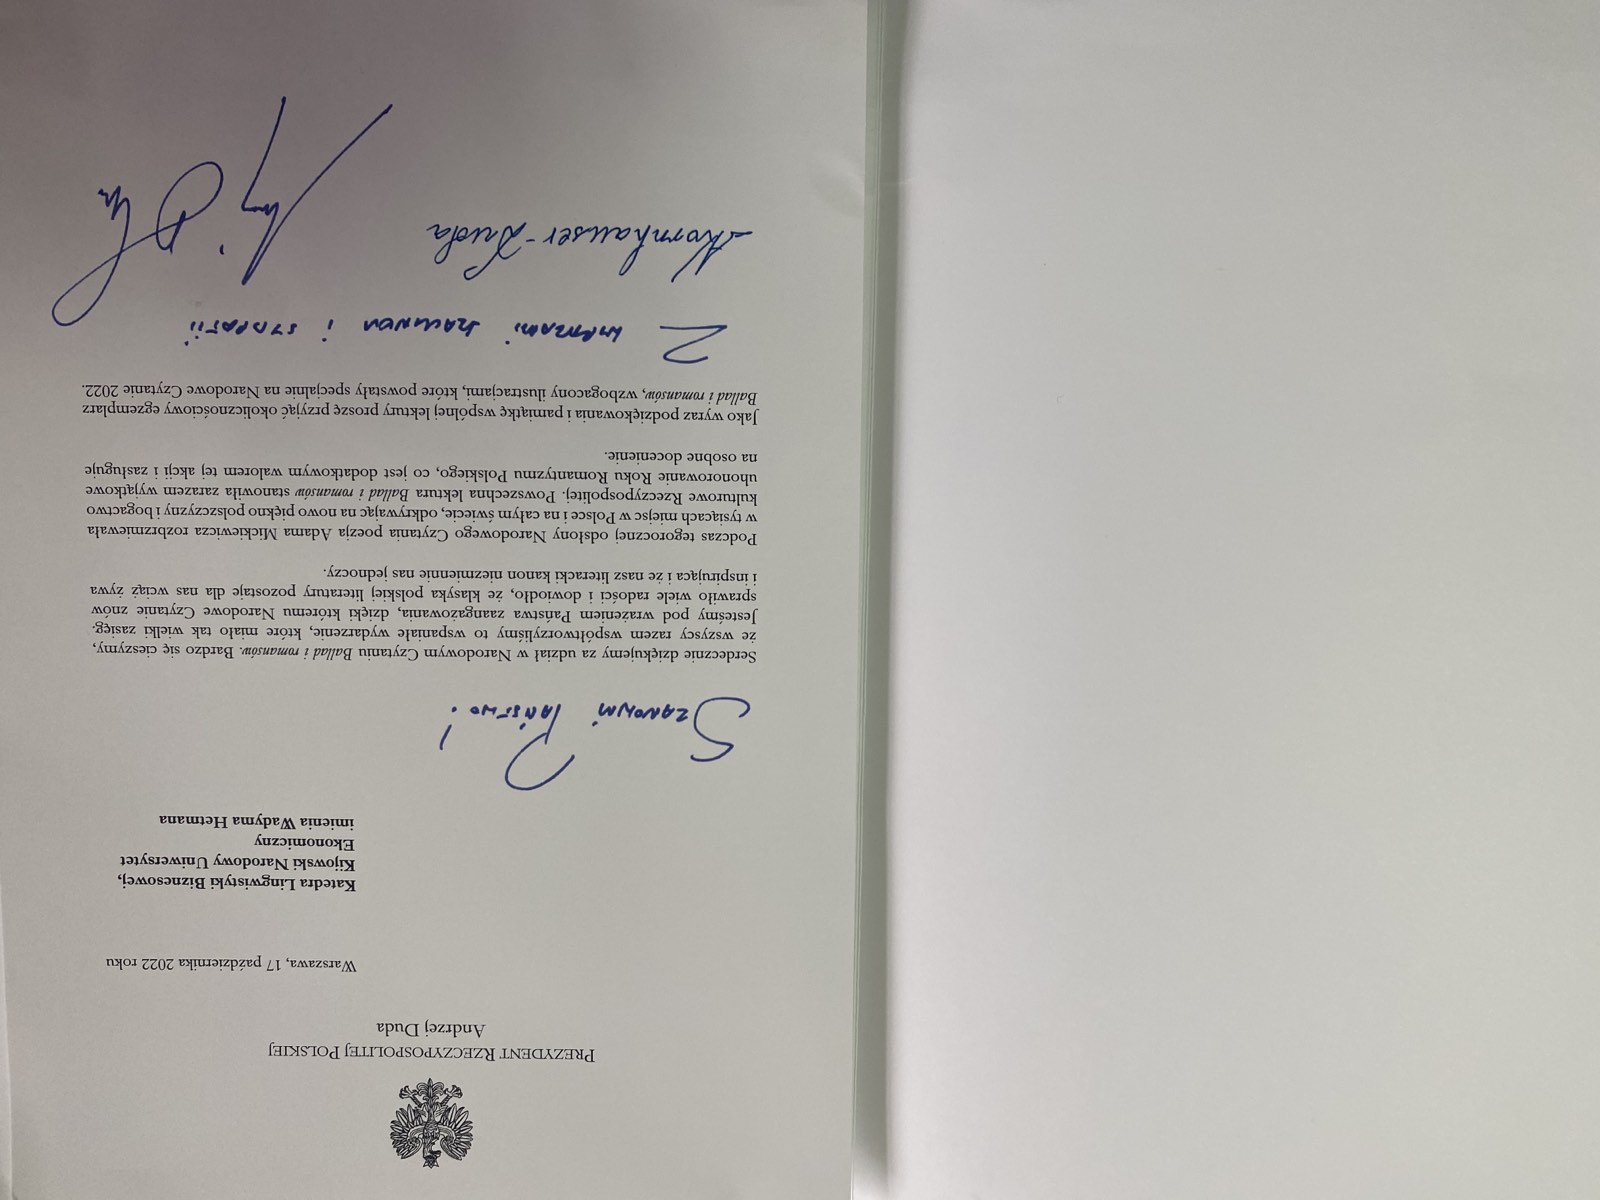 PREZYDENT RZECZYPOSPOLITEJ POLSKIEJ
Andrzej Duda
Warszawa, 17 października 2022 roku
Katedra Lingwistyki Biznesowej,
Kijowski Narodowy Uniwersytet
Ekonomiczny
imienia Wadyma Hetmana
Szanowni Państwo!
Serdecznie dziękujemy za udział w Narodowym Czytaniu Ballad i romansów. Bardzo się cieszymy,
że wszyscy razem współtworzyliśmy to wspaniałe wydarzenie, które miało tak wielki zasięg.
Jesteśmy pod wrażeniem Państwa zaangażowania, dzięki któremu Narodowe Czytanie znów
sprawiło wiele radości i dowiodło, że klasyka polskiej literatury pozostaje dla nas wciąż żywa
i inspirująca i że nasz literacki kanon niezmiennie nas jednoczy.
Podczas tegorocznej odsłony Narodowego Czytania poezja Adama Mickiewicza rozbrzmiewała
w tysiącach miejsc w Polsce i na całym świecie, odkrywając na nowo piękno polszczyzny i bogactwo
kulturowe Rzeczypospolitej. Powszechna lektura Ballad i romansów stanowiła zarazem wyjątkowe
uhonorowanie Roku Romantyzmu Polskiego, co jest dodatkowym walorem tej akcji i zasługuje
na osobne docenienie.
Jako wyraz podziękowania i pamiątkę wspólnej lektury proszę przyjąć okolicznościowy egzemplarz
Ballad i romansów, wzbogacony ilustracjami, które powstały specjalnie na Narodowe Czytanie 2022.
Z wyrazami szacunku i sympatii
AKornhauser-Duda